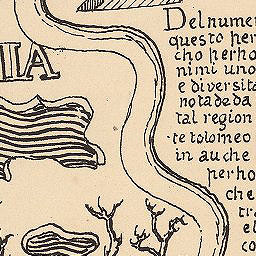 IIA
Delnume
questo per
cho perho
nimi uno
e diversita
nota de da
tal region
te tolomeo
in auche
perho
che
tra
el
co